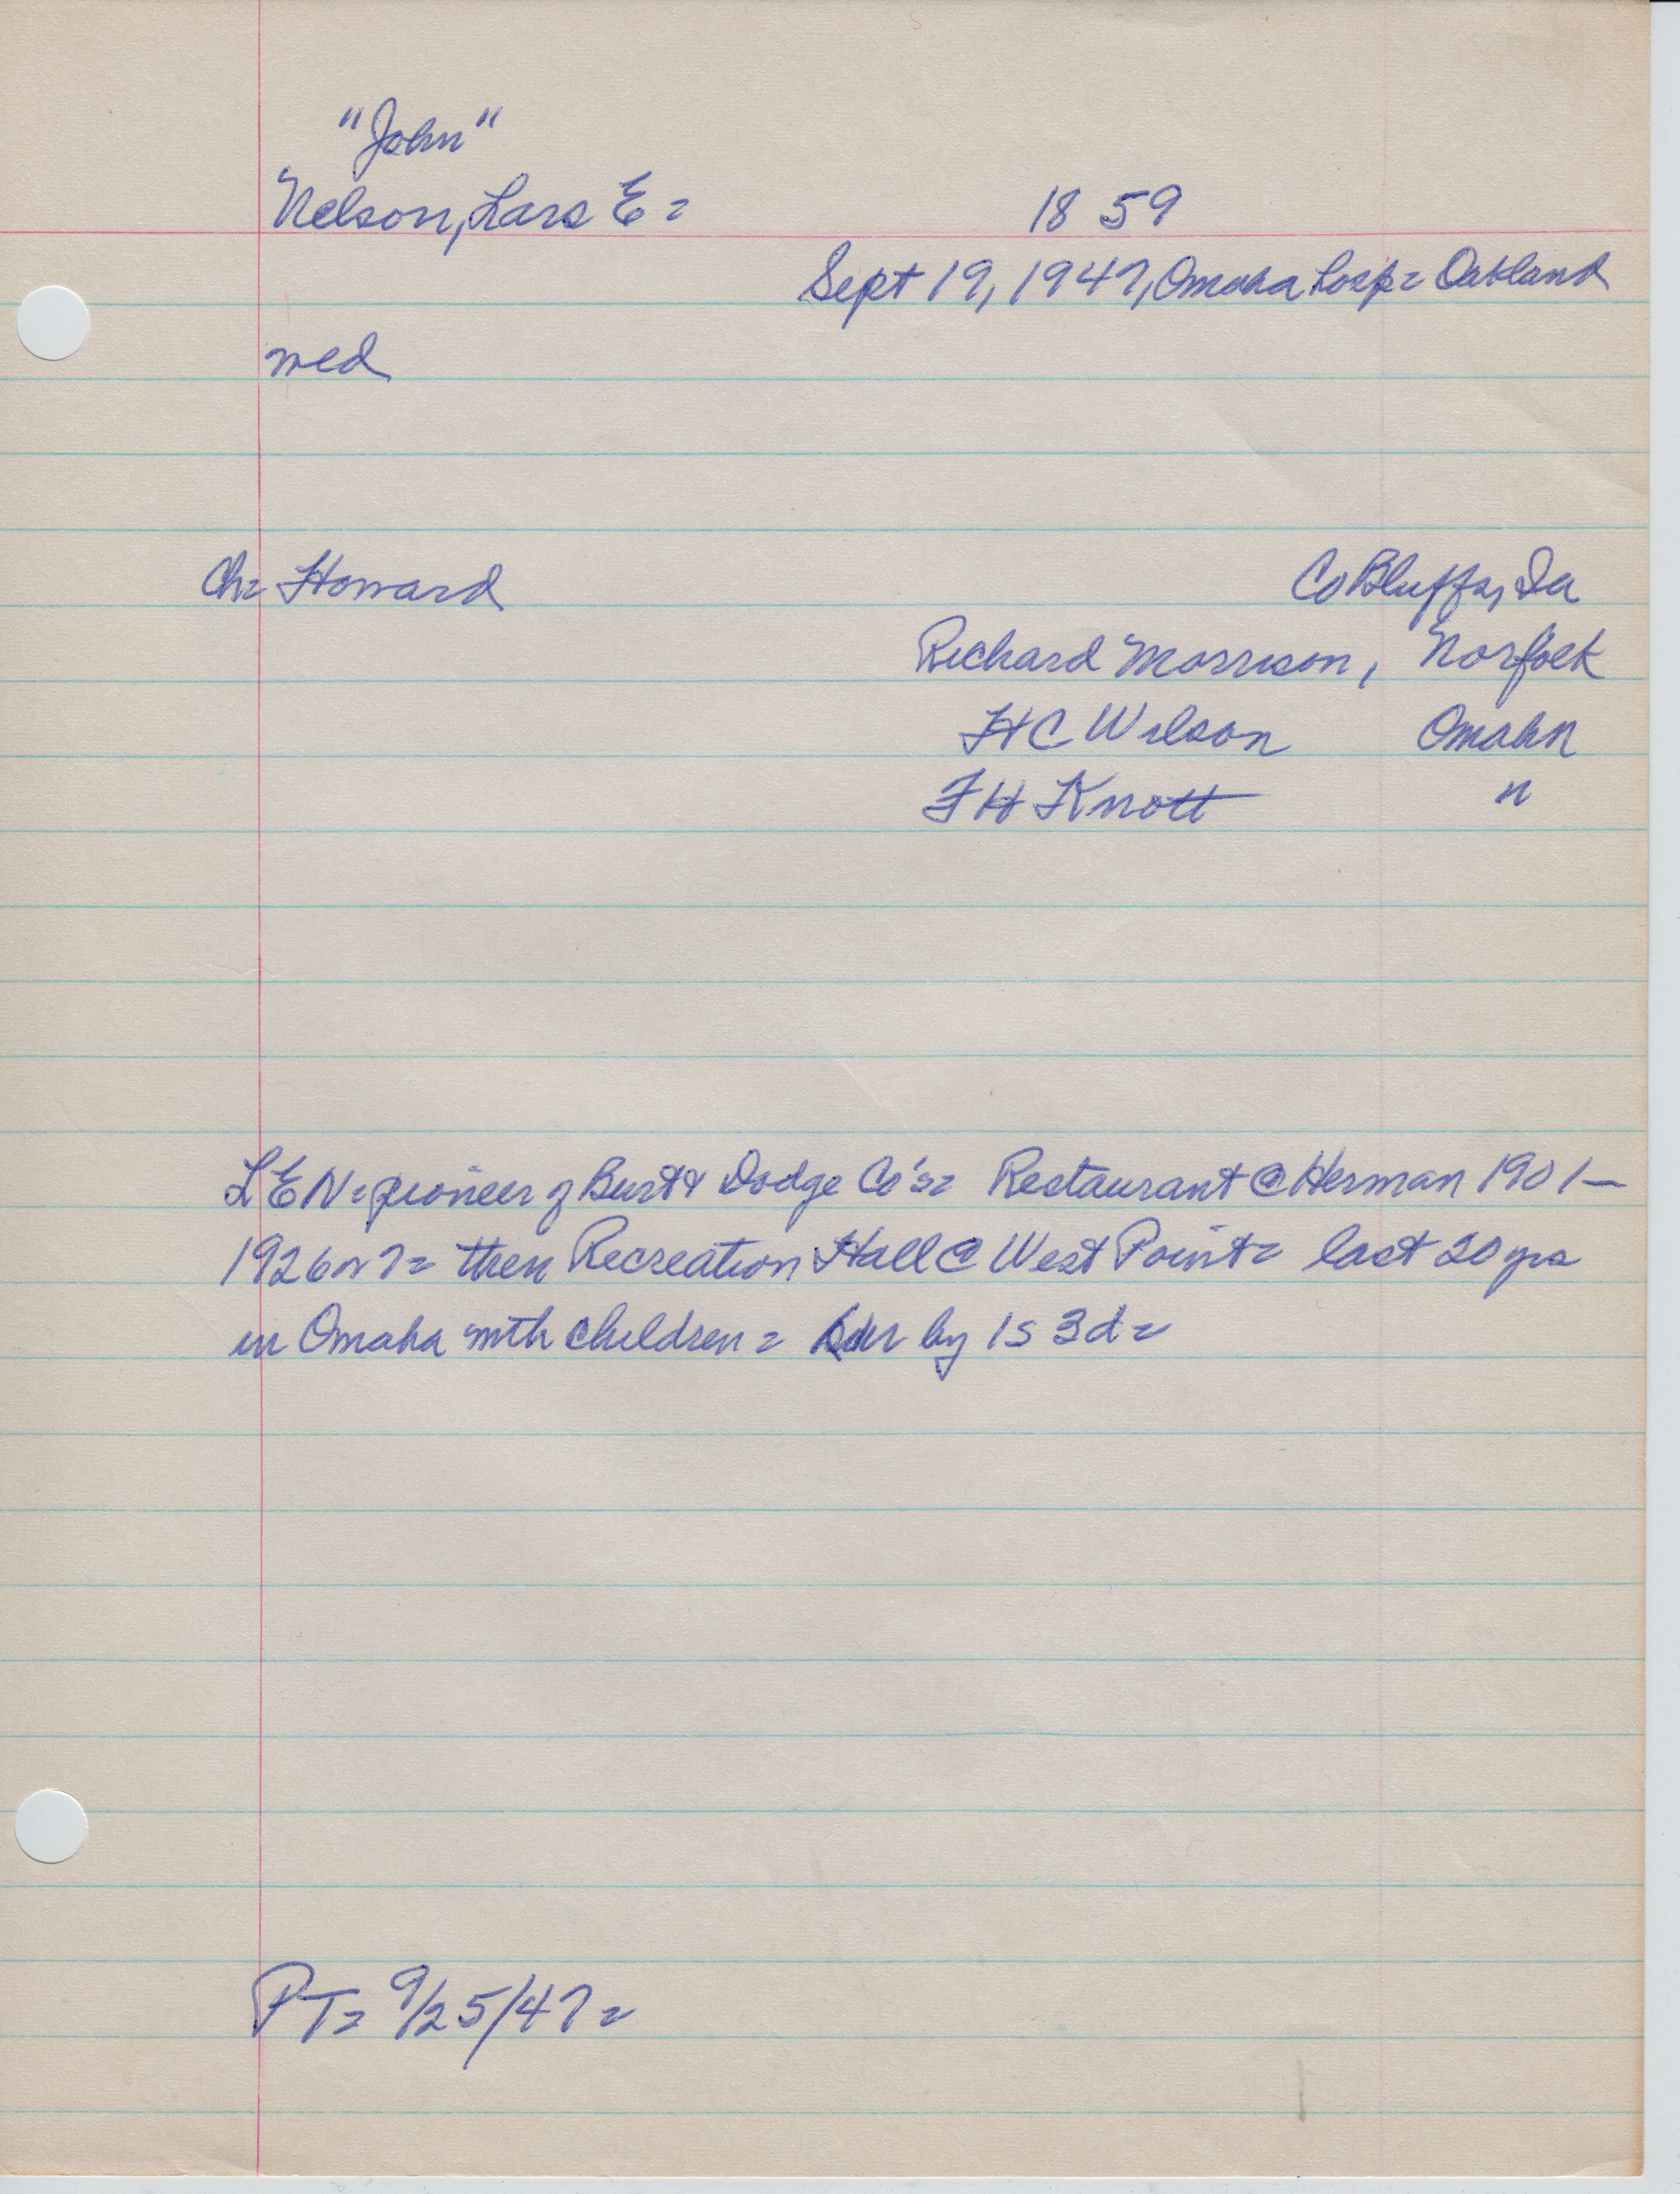 "John"
Nelson, Lars E = 1859
Sept 19, 1947, Omaha hosp = Oakland
wed
Ch = Howard Co Bluffs, Ia
Richard Morrison, Norfolk
H C Wilson Omaha
F H Knott "
L E N = pioneer of Burt & Dodge Co's = Restaurant @ Herman 1901 -
1926 or 7 = then Recreation Hall @ West Point = last 20 yrs
in Omaha with children = by 1s 3d =
PT = 9/25/47 =